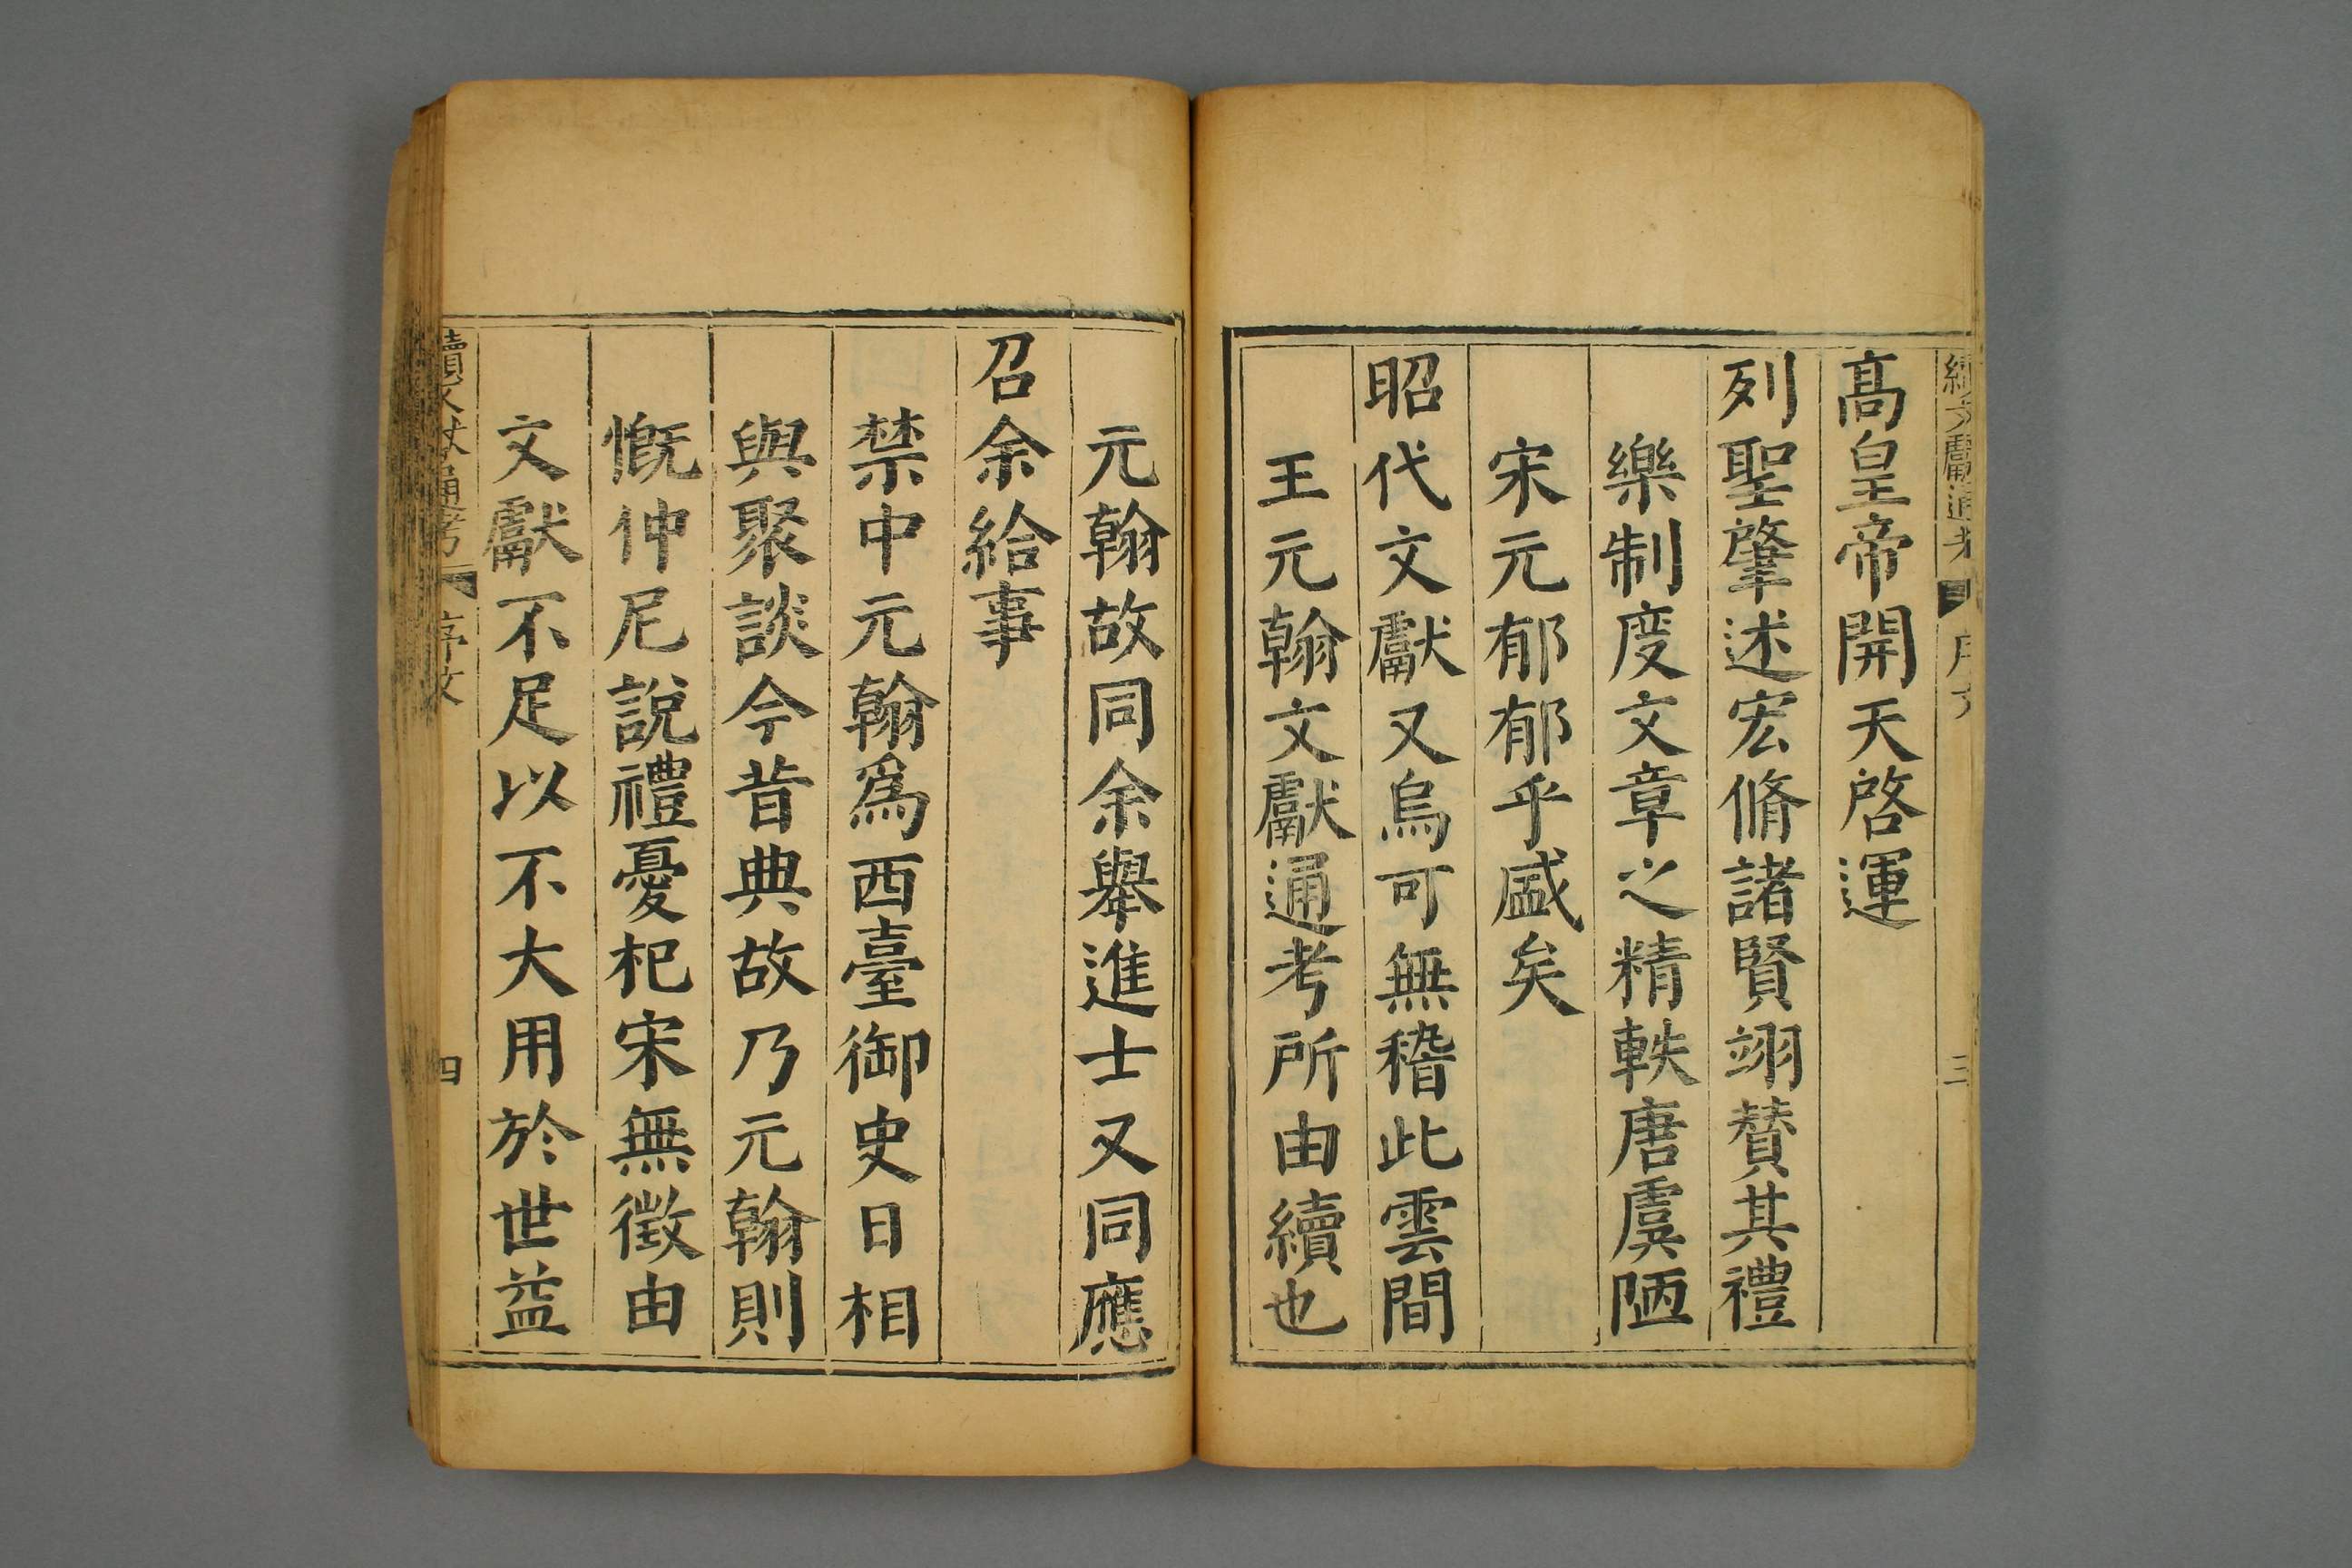 續文獻通考
序文
三
髙皇帝開天啓運
列聖肇述宏脩諸賢翊賛其禮
樂制度文章之精軼唐虞陋
宋元郁郁乎盛矣
昭代文獻又烏可無稽此雲間
王元翰文獻通考所由續也
元翰故同余舉進士又同應
召余給事
禁中元翰爲西臺御史日相
與聚談今昔典故乃元翰則
慨仲尼說禮憂杞宋無徵由
文獻不足以不大用於世益
續文獻通考
序文
四